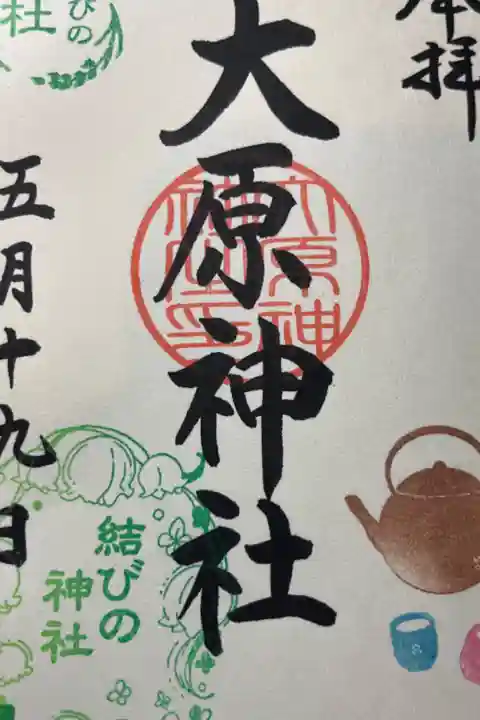 奉拝
大原神社
大原神
社之印
五月十九日
びの
社
結びの
神社